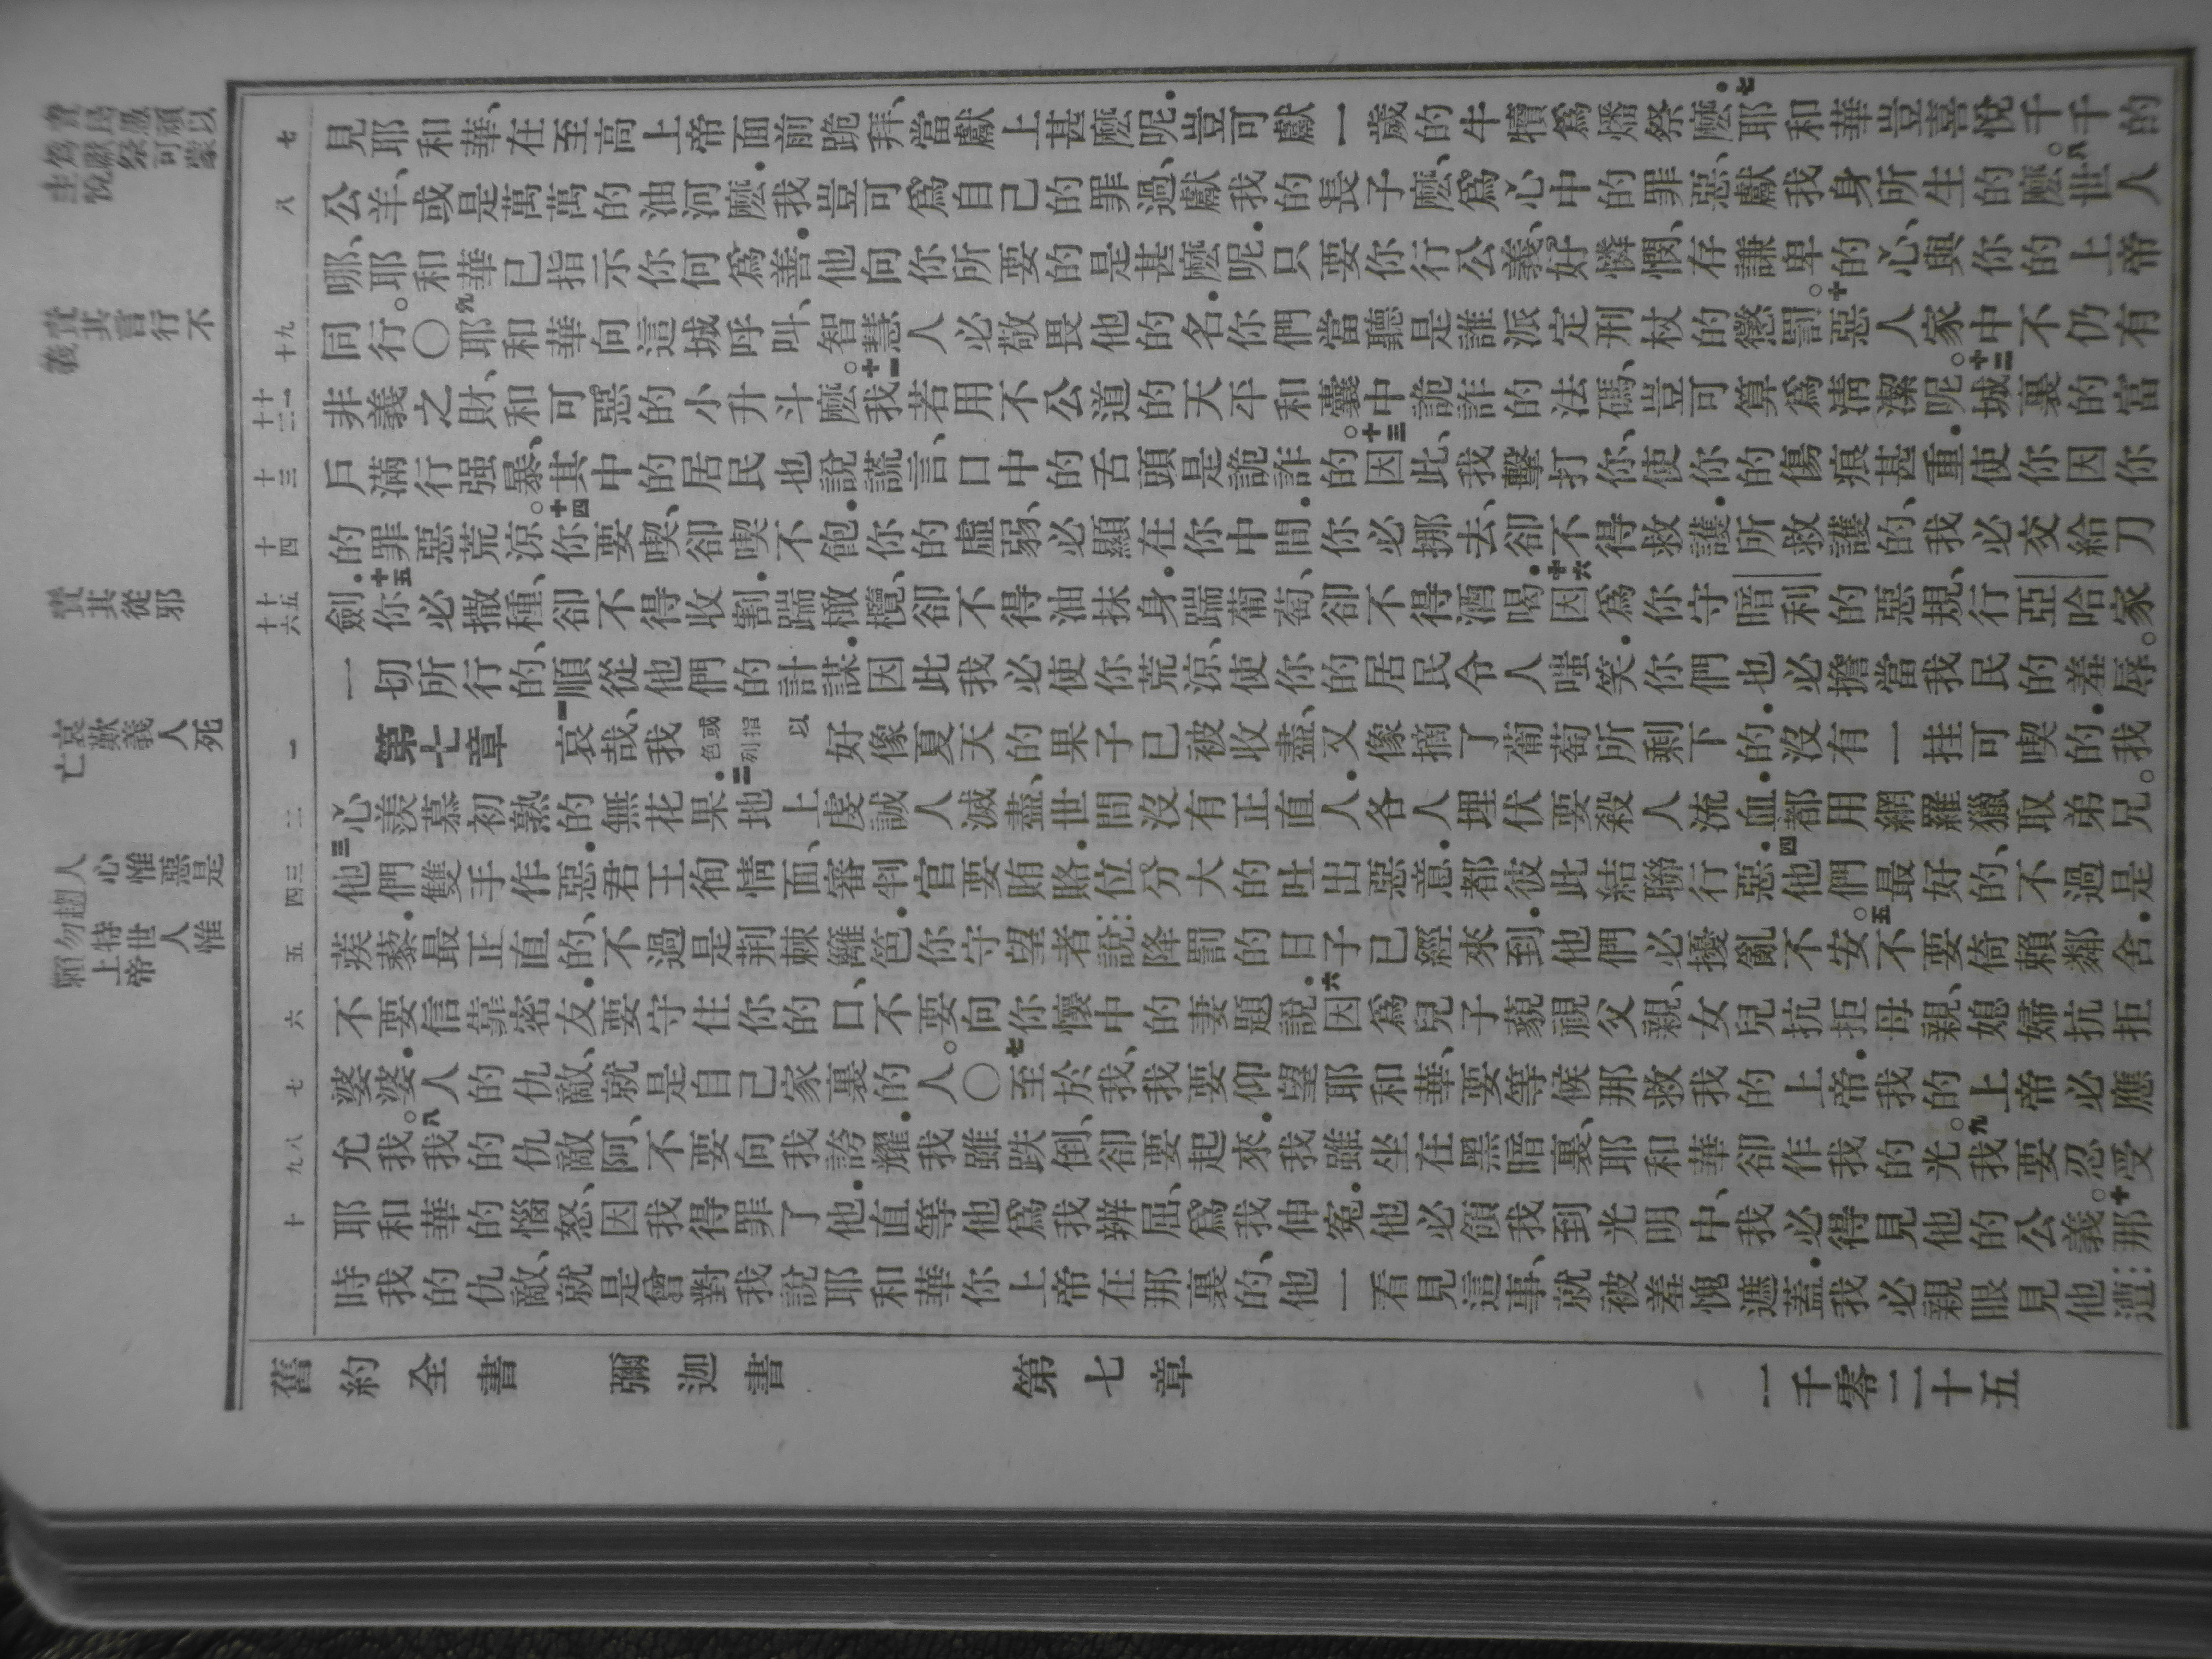 責民愚頑以
爲獻祭可蒙
主悅
責其言行不
義
責其從邪
哀歎義人死
亡
人心惟惡是
趨
勿恃世人惟
賴上帝
七
八
九
十
十一
十二
十三
十四
十五
十六
一
二
三
四
五
六
七
八
九
十
見耶和華、在至高上帝面前跪拜、當獻上甚麽呢．豈可獻一歲的牛犢爲燔祭麽．七耶和華豈喜悅千千的
公羊、或是萬萬的油河麽．我豈可爲自己的罪過、獻我的長子麽、爲心中的罪惡、獻我身所生的麽。八世人
哪、耶和華已指示你何爲善．他向你所要的是甚麽呢．只要你行公義、好憐憫、存謙卑的心、與你的上帝
同行。〇九耶和華向這城呼叫、智慧人必敬畏他的名．你們當聽是誰派定刑杖的懲罰。十惡人家中不仍有
非義之財、和可惡的小升斗麽。十一我若用不公道的天平和囊中詭詐的法碼、豈可算爲清潔呢。十二城裏的富
戶滿行强暴、其中的居民也說謊言、口中的舌頭是詭詐的。十三因此、我擊打你、使你的傷痕甚重．使你因你
的罪惡荒涼。十四你要喫、卻喫不飽．你的虛弱、必顯在你中間．你必挪去、卻不得救護．所救護的、我必交給刀
劍．十五你必撒種、卻不得收割．踹橄欖、卻不得油抹身．踹葡萄、卻不得酒喝．十六因爲你守暗利的惡規、行亞哈家
一切所行的、順從他們的計謀．因此我必使你荒涼、使你的居民令人嗤笑．你們也必擔當我民的羞辱。
第七章 一哀哉、我或色列指以好像夏天的果子已被收盡、又像摘了葡萄所剩下的．沒有一挂可喫的．我
心羨慕初熟的無花果．二地上虔誠人滅盡、世間沒有正直人．各人埋伏要殺人流血．都用網羅獵取弟兄。
三他們雙手作惡．君王徇情面、審判官要賄賂．位分大的吐出惡意．都彼此結聯行惡．四他們最好的、不過是
蒺藜．最正直的、不過是荆棘籬笆．你守望者說：降罰的日子已經來到．他們必擾亂不安。五不要倚賴鄰舍．
不要信靠密友．要守住你的口、不要向你懷中的妻題說．六因爲兒子藐視父親、女兒抗拒母親、媳婦抗拒
婆婆．人的仇敵、就是自己家裏的人。〇七至於我、我要仰望耶和華、要等候那救我的上帝．我的上帝必應
允我。八我的仇敵阿、不要向我誇耀．我雖跌倒、卻要起來．我雖坐在黑暗裏、耶和華卻作我的光。九我要忍受
耶和華的惱怒、因我得罪了他．直等他爲我辨屈、爲我伸冤．他必領我到光明中、我必得見他的公義。十那
時我的仇敵、就是曾對我說耶和華你上帝在那裏的、他一看見這事、就被羞愧遮蓋．我必親眼見他遭：
舊約全書　彌迦書　第七章　一千零二十五